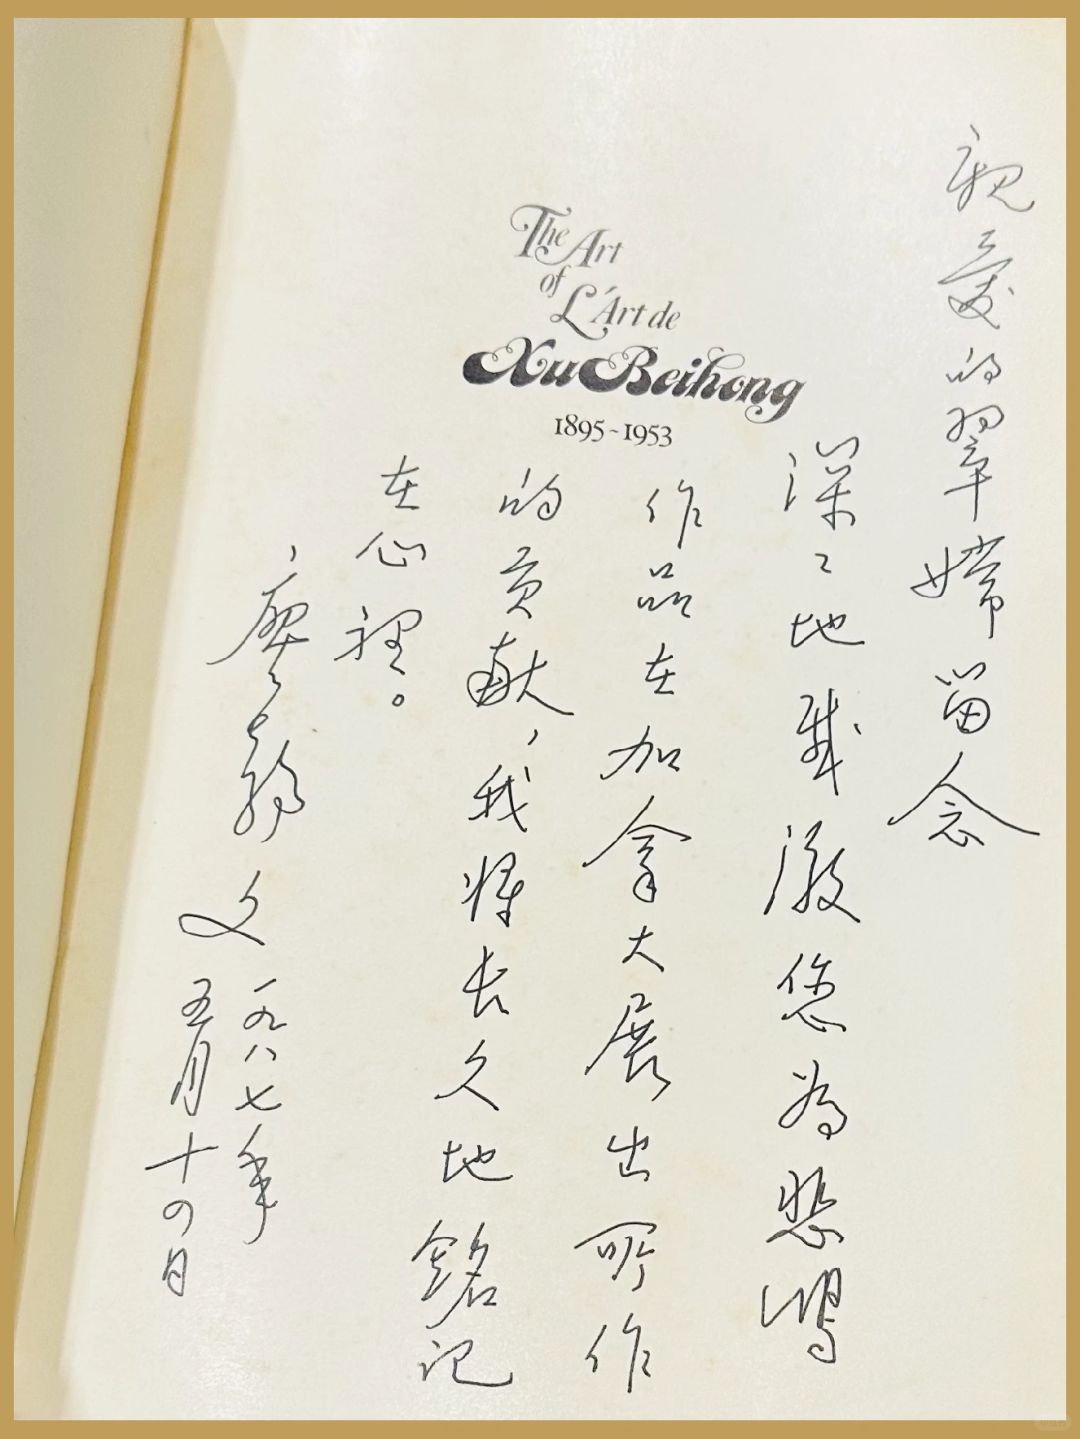 The Art
of
L'Art de
Xu Beihong
1895-1953
親愛的翠嫦留念
深〻地感激您為悲鴻
作品在加拿大展出所作
的贡献，我将长久地銘记
在心裡。
廖静文
一九八七年
五月十四日